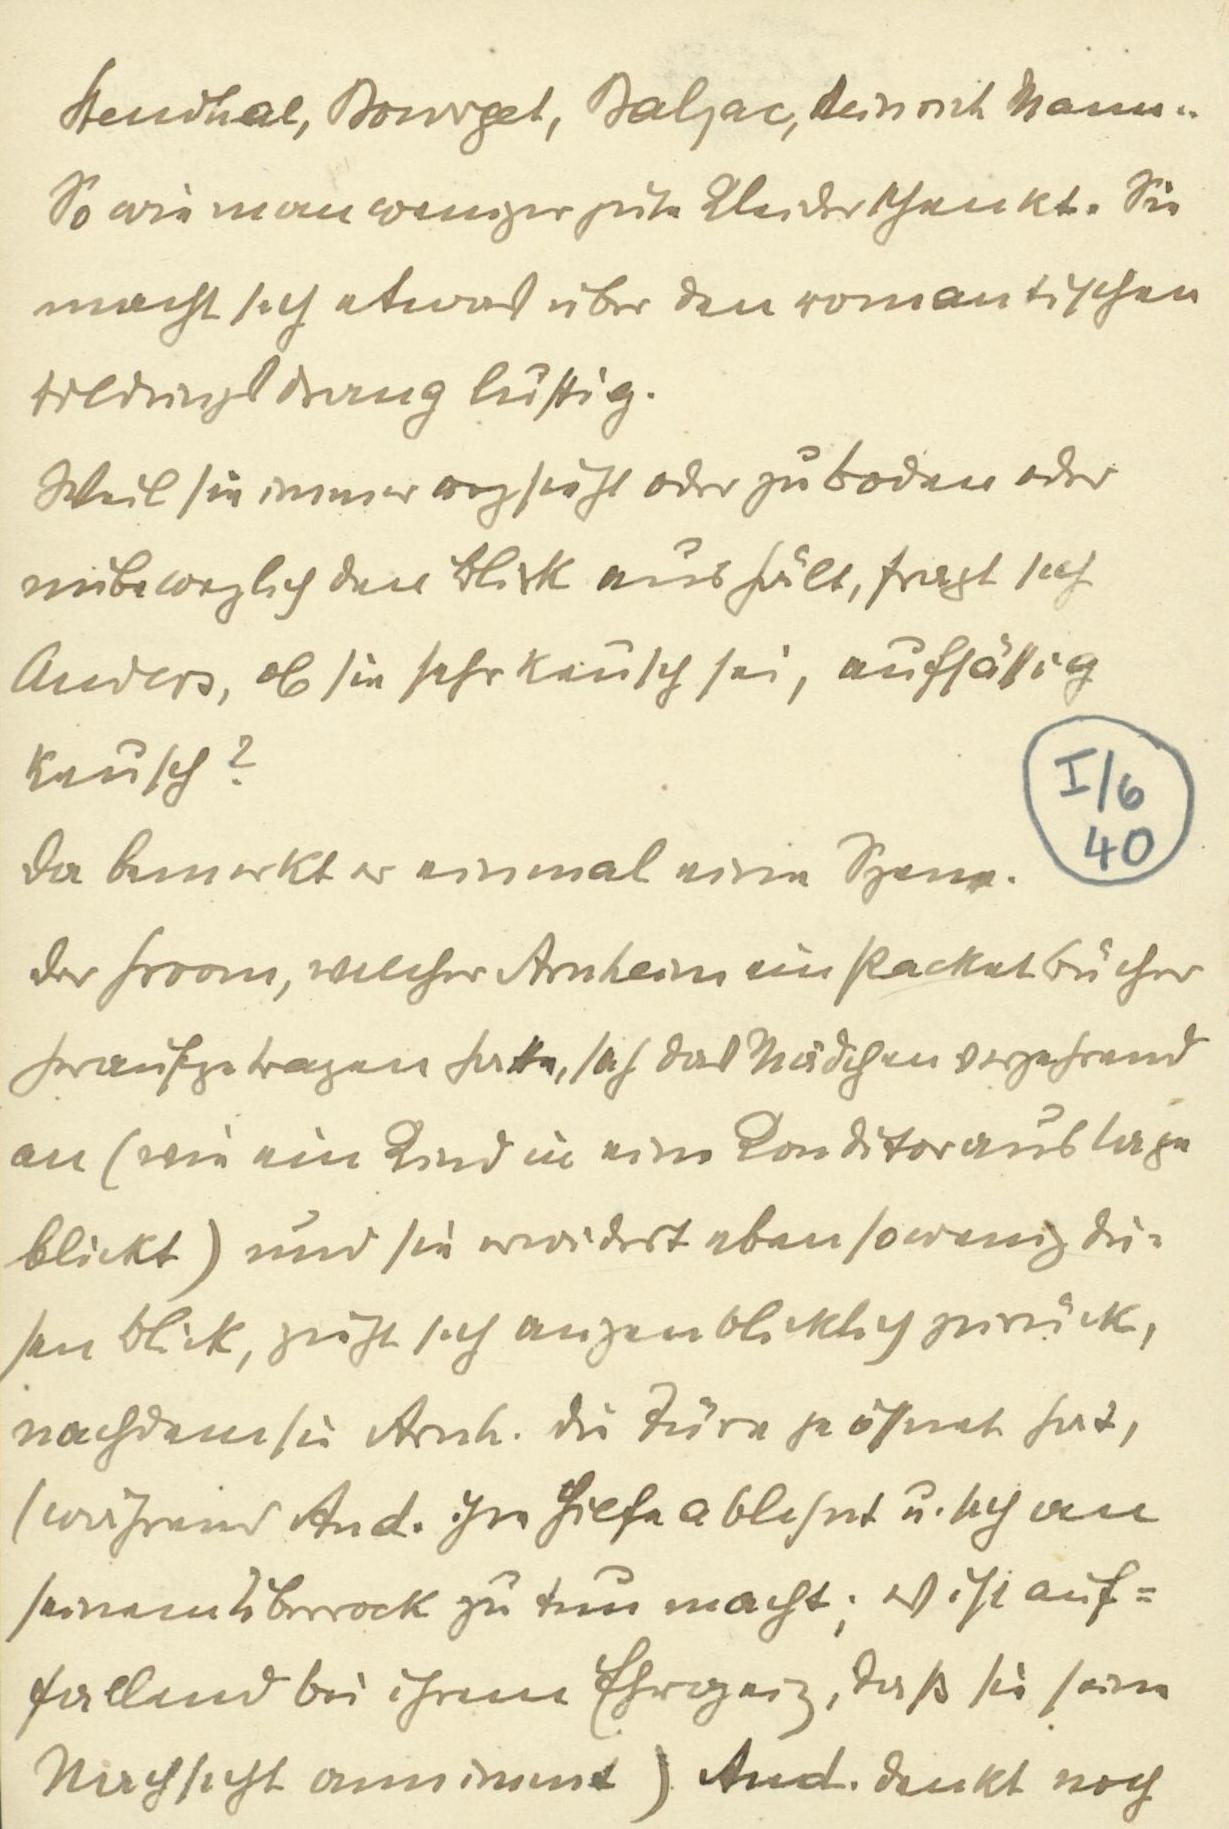 Stendhal, Bourget, Balzac, Heinrich Mann..
So wie man weniger gute Kleider schenkt. Sie
macht sich etwas über den romantischen
Bildungsdrang lustig.
Weil sie immer wegsieht oder zu boden oder
unbeweglich den Blick aushält, fragt sich
Anders, ob sie sehr keusch sei, aufsässig
keusch?
Da bemerkt er einmal eine Szene.
Der Groom, welcher Arnheim ein Packet Bücher
heraufgetragen hatte, sah das Mädchen verzehrend
an (wie ein Kind in eine Konditorauslage
blickt) und sie erwidert ebensowenig die-
sen Blick, zieht sich augenblicklich zurück,
nachdem sie Arnh. die Türe geöffnet hat,
(während And. ihre Hilfe ablehnt u. sich an
seinem Überrock zu tun macht; es ist auf=
fallend bei ihrem Ehrgeiz, daß sie seine
Nachsicht annimmt) And. denkt noch
I/6
40